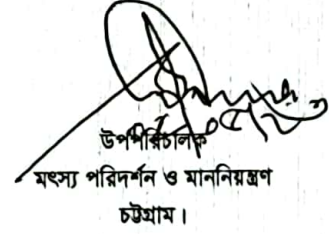 উপপরিচালক
মৎস্য পরিদর্শন ও মাননিয়ন্ত্রণ
চট্টগ্রাম।